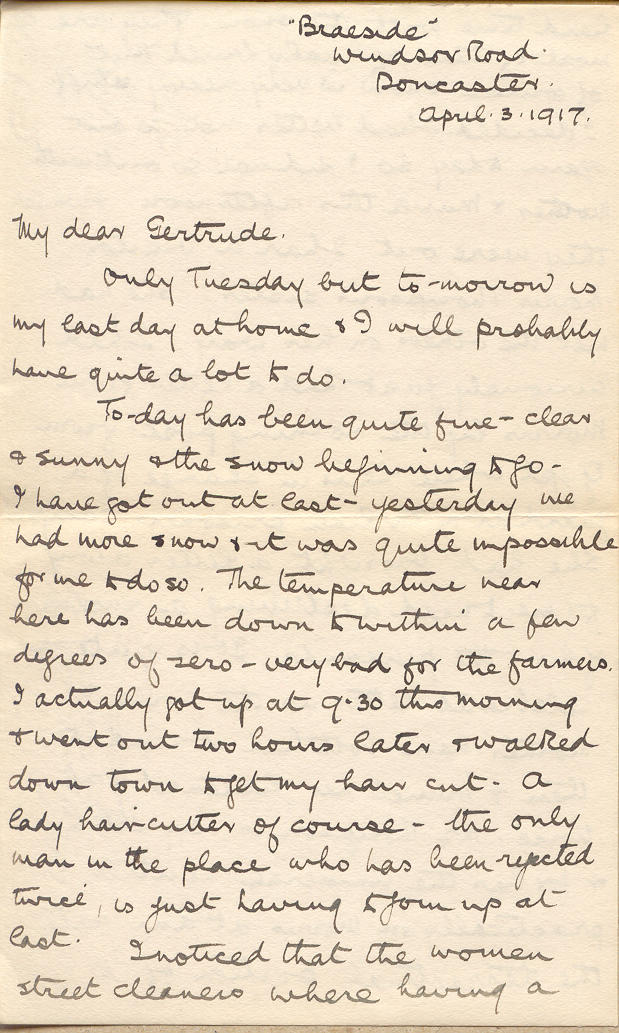 "Braeside"
Windsor Road.
Doncaster.
April. 3. 1917.
My dear Gertrude.
Only Tuesday but to-morrow is
my last day at home & I will probably
have quite a lot to do.
To-day has been quite fine - clear
& sunny & the snow beginning to go -
I have got out at last - yesterday we
had more snow & it was quite impossible
for me to do so. The temperature near
here has been down to within a few
degrees of zero - very bad for the farmers.
I actually got up at 9.30 this morning
& went out two hours later & walked
down town to get my hair cut - A
lady haircutter of course - the only
man in the place who has been rejected
twice, is just having to join up at
last. I noticed that the women
street cleaners where having a